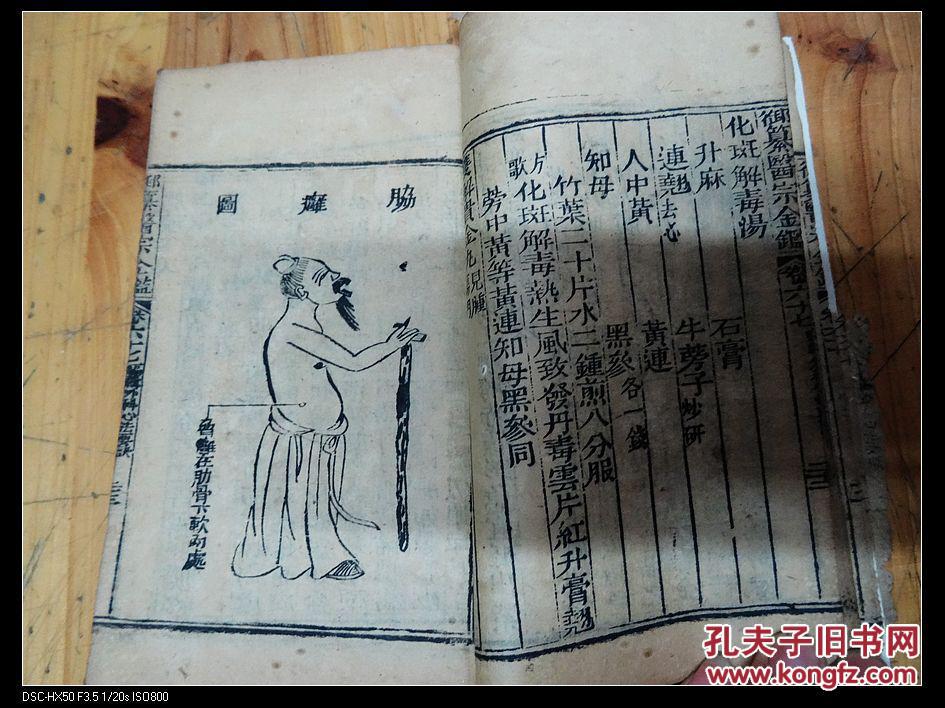 御纂醫宗金鑑 卷六十七
化斑解毒湯
升麻 石膏
連翹去心 牛蒡子炒研
人中黃 黃連
知母 黑參各一錢
竹葉二十片水二鍾煎八分服
方歌 化斑解毒熱生風致發丹毒雲片紅升膏翹
蒡中黃等黃連知母黑參同
見腫
脇癰圖
癰在肋骨下軟肉處
孔夫子旧书网
www.kongfz.com
DSC-HX50 F3.5 1/20s ISO800